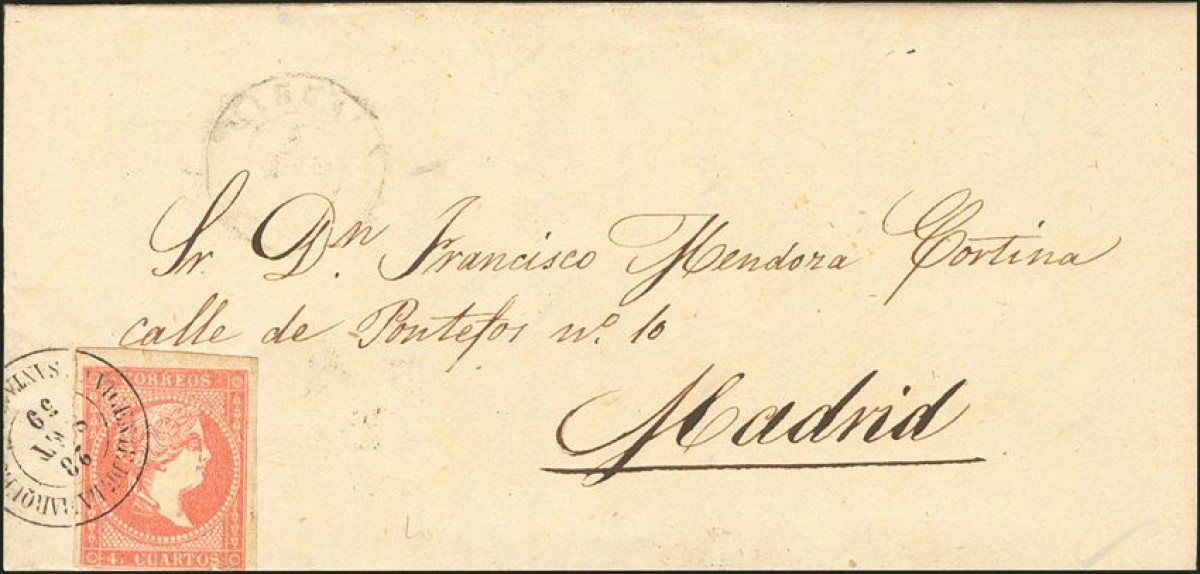 Sr. Dn. Francisco Mendoza Cortina
calle de Pontejos nº. 10
Madrid
CORREOS
4. CUARTOS
28
59